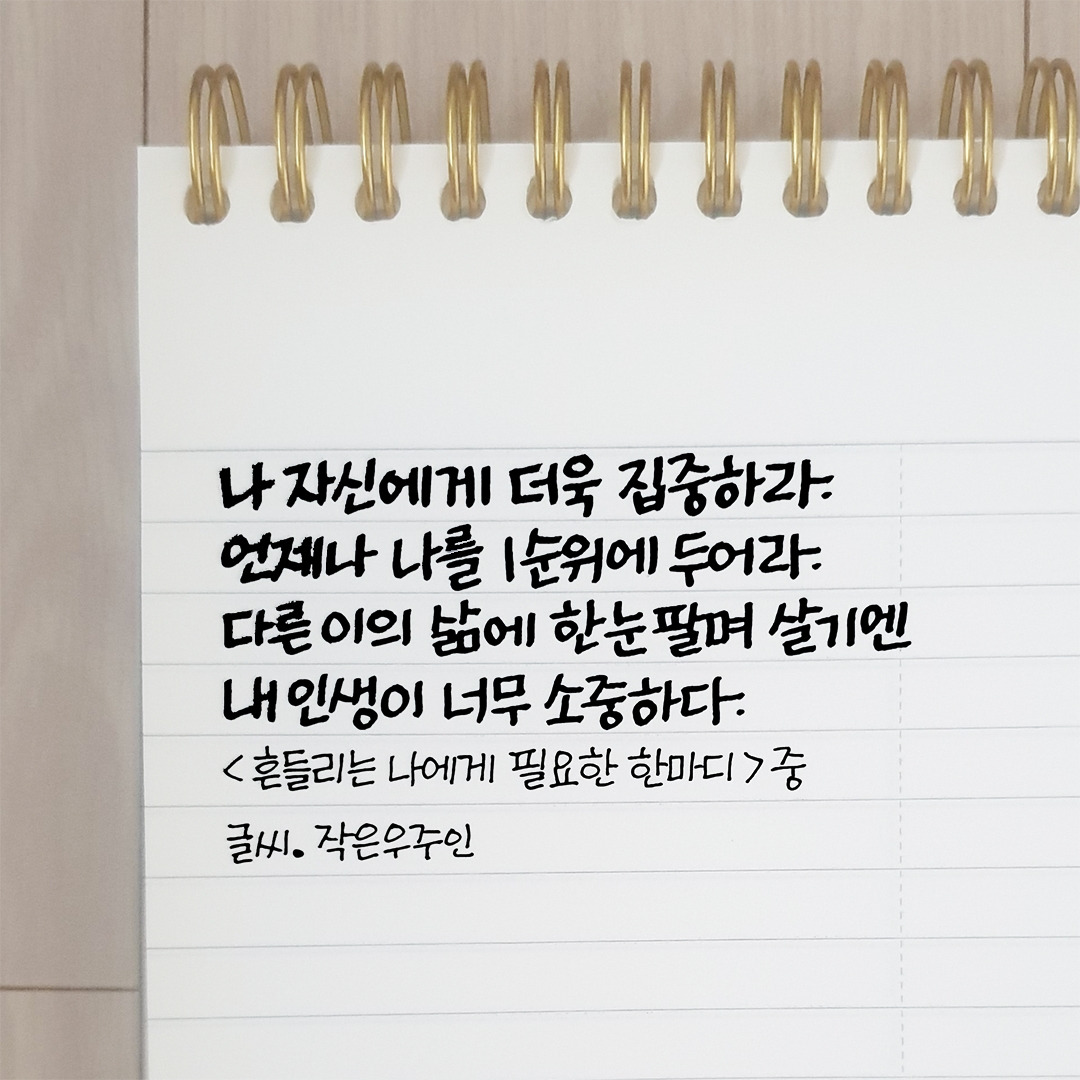 나 자신에게 더욱 집중하라.
언제나 나를 1순위에 두어라.
다른 이의 삶에 한눈팔며 살기엔
내 인생이 너무 소중하다.
<흔들리는 나에게 필요한 한마디> 중
글씨. 작은우주인